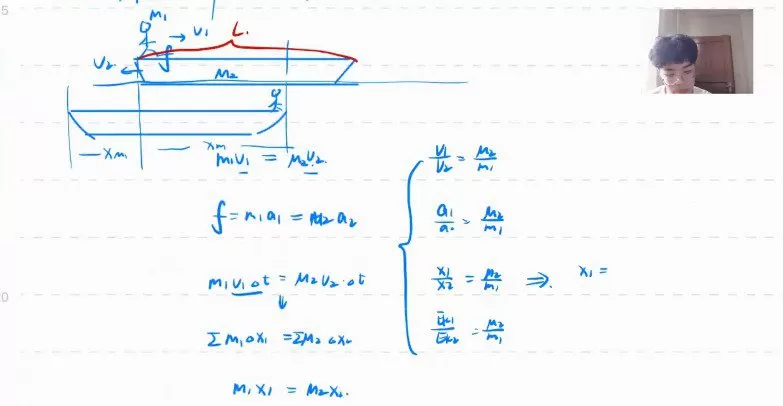 5
M₁
→ V₁
L.
V₂
f
M₂
Xm
Xm
m₁V₁ = M₂V₂.
f = m₁a₁ = M₂a₂
m₁V₁△t = M₂V₂·△t
↓
Σm₁△x₁ = ΣM₂△x₂
m₁x₁ = M₂x₂.
V₁/V₂ = M₂/m₁
a₁/a. = M₂/m₁
x₁/x₂ = M₂/m₁ ⇒. x₁ =
Ek₁/Ek₂ = M₂/m₁
20